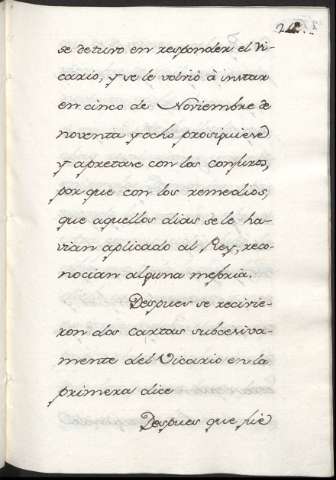 se detuvo en responder el Vi-
cario, y se le volvió à instar
en cinco de Noviembre de
noventa y ocho prosiguiese
y apretase con los conjuros,
por que con los remedios,
que aquellos dias se le ha-
vian aplicado al Rey, reco-
nocian alguna mejoria.
Despues se recivie-
ron dos cartas subcesiva-
mente del Vicario en la
primera dice
Despues que fué